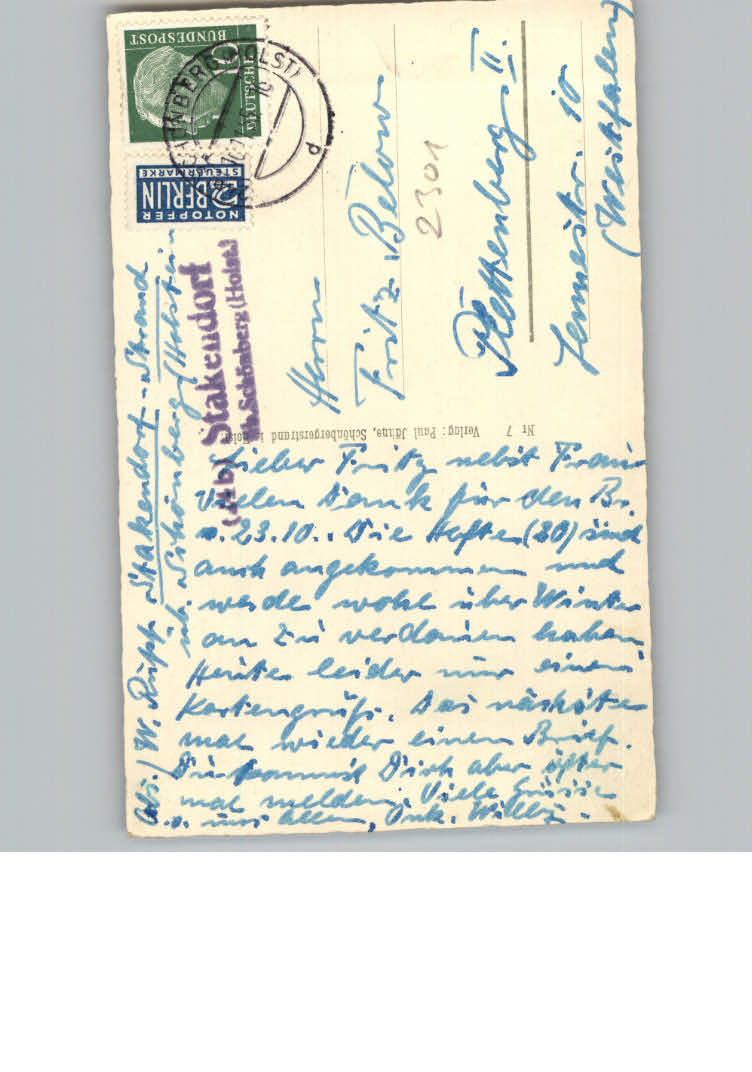 DEUTSCHE
BUNDESPOST
10
SCHÖNBERG (HOLST)
NOTOPFER
2 BERLIN
STEUERMARKE
(24b) Stakendorf
üb. Schönberg (Holst.)
Abs. / W. Rupp Stakendorf-Strand
üb. Schönberg / Holstein
Herrn
Fritz Below
2301
Plettenberg II.
Lennestr. 10
(Westfalen)
Nr 7 Verlag: Paul Jähne, Schönbergerstrand i. Holst.
Lieber Fritz nebst Frau
Vielen Dank für den Br.
v. 23.10.. Die Hefte (30) sind
auch angekommen und
werde wohl über Winter
an zu verdauen haben.
Heute leider nur einen
Kartengruß. Das nächste
mal wieder einen Brief.
Du kannst Dich aber öfter
mal melden. Viele Grüsse
v. uns Allen, Onk. Willy.